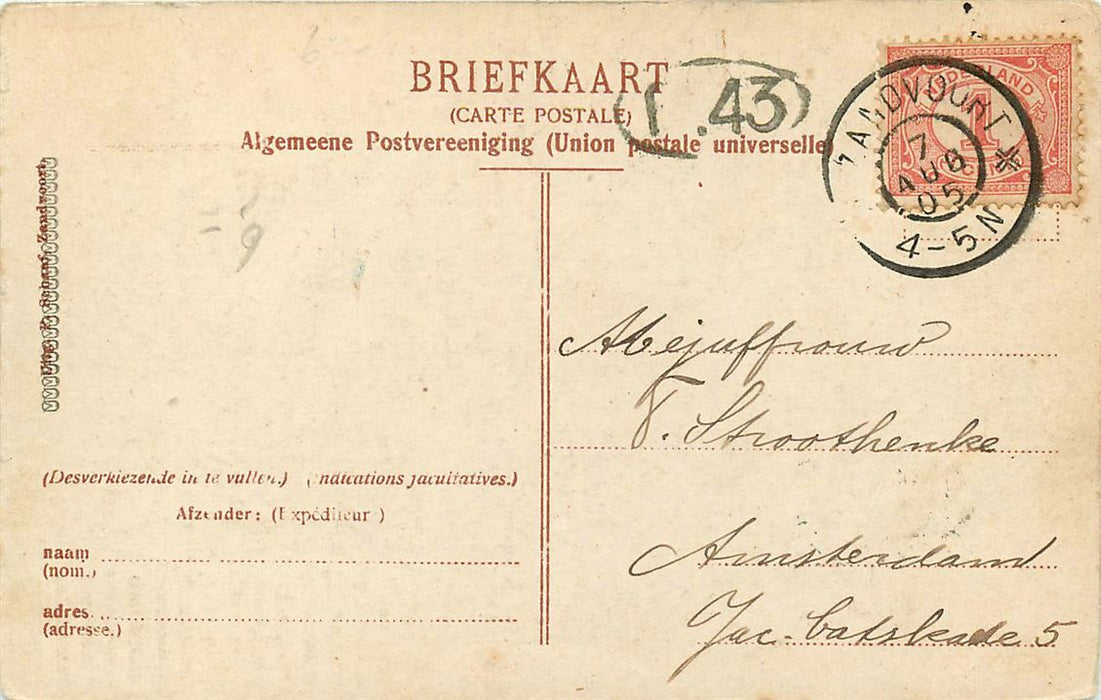 BRIEFKAART
(CARTE POSTALE)
Algemeene Postvereeniging (Union postale universelle)
43
NEDERLAND
1
ZANDVOORT
7
AUG
05
4-5N
Zandvoort
Mejuffrouw
F. Stroothenke
Amsterdam
Jac-Catskade 5
(Desverkiezende in te vullen.) (Indications facultatives.)
Afzender: (Expéditeur)
naam
(nom.)
adres
(adresse.)